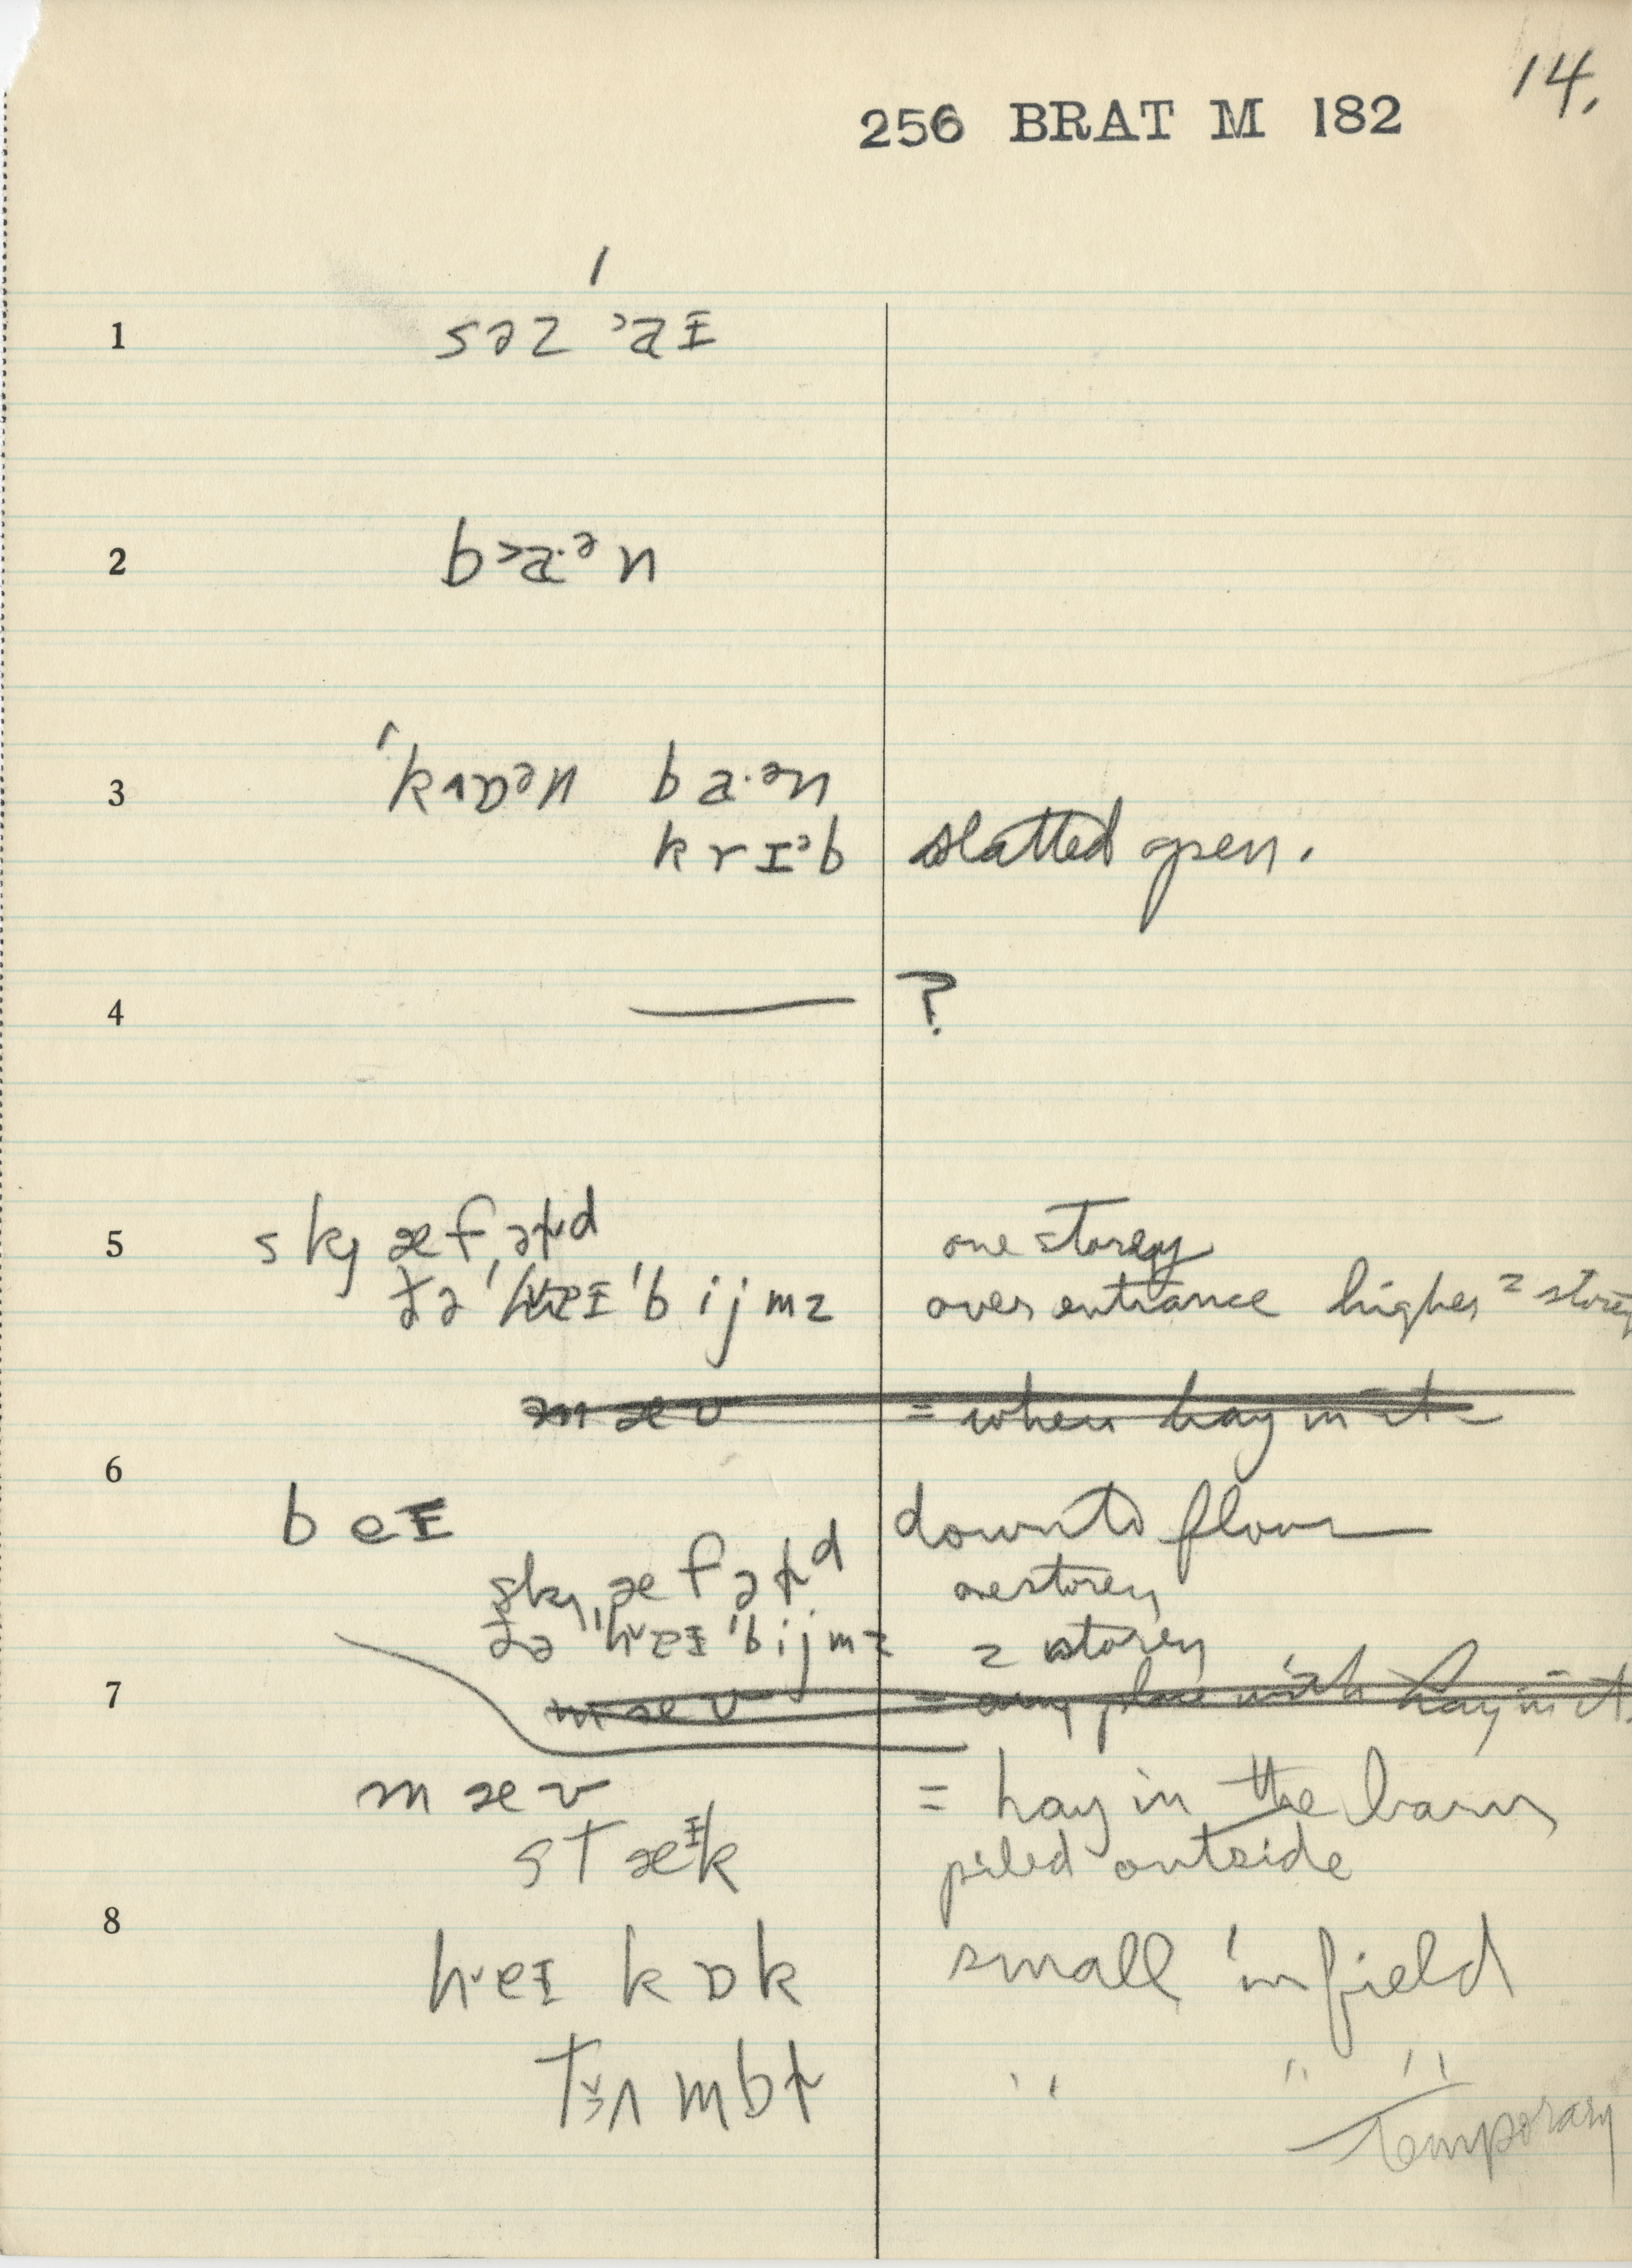 14.
256 BRAT M 182
1 səz ˃aɪ
2 b˃a·ᵊn
3 ˈkʌɒᵊn ba·ᵊn
krɪᵊb slatted open.
4 — ?
5 skæfəɫd one storey
ðə ˈheɪ ˈbijmz over entrance higher 2 storey
mæv = when hay in it
6
beɪ down to floor
skæfəɫd one storey
ðə ˈheɪ ˈbijmz 2 storey
7 mæv = any place with hay in it.
mæv = hay in the barn
stæᶦk piled outside
8
heɪ kɒk small in field
" " "
temporary